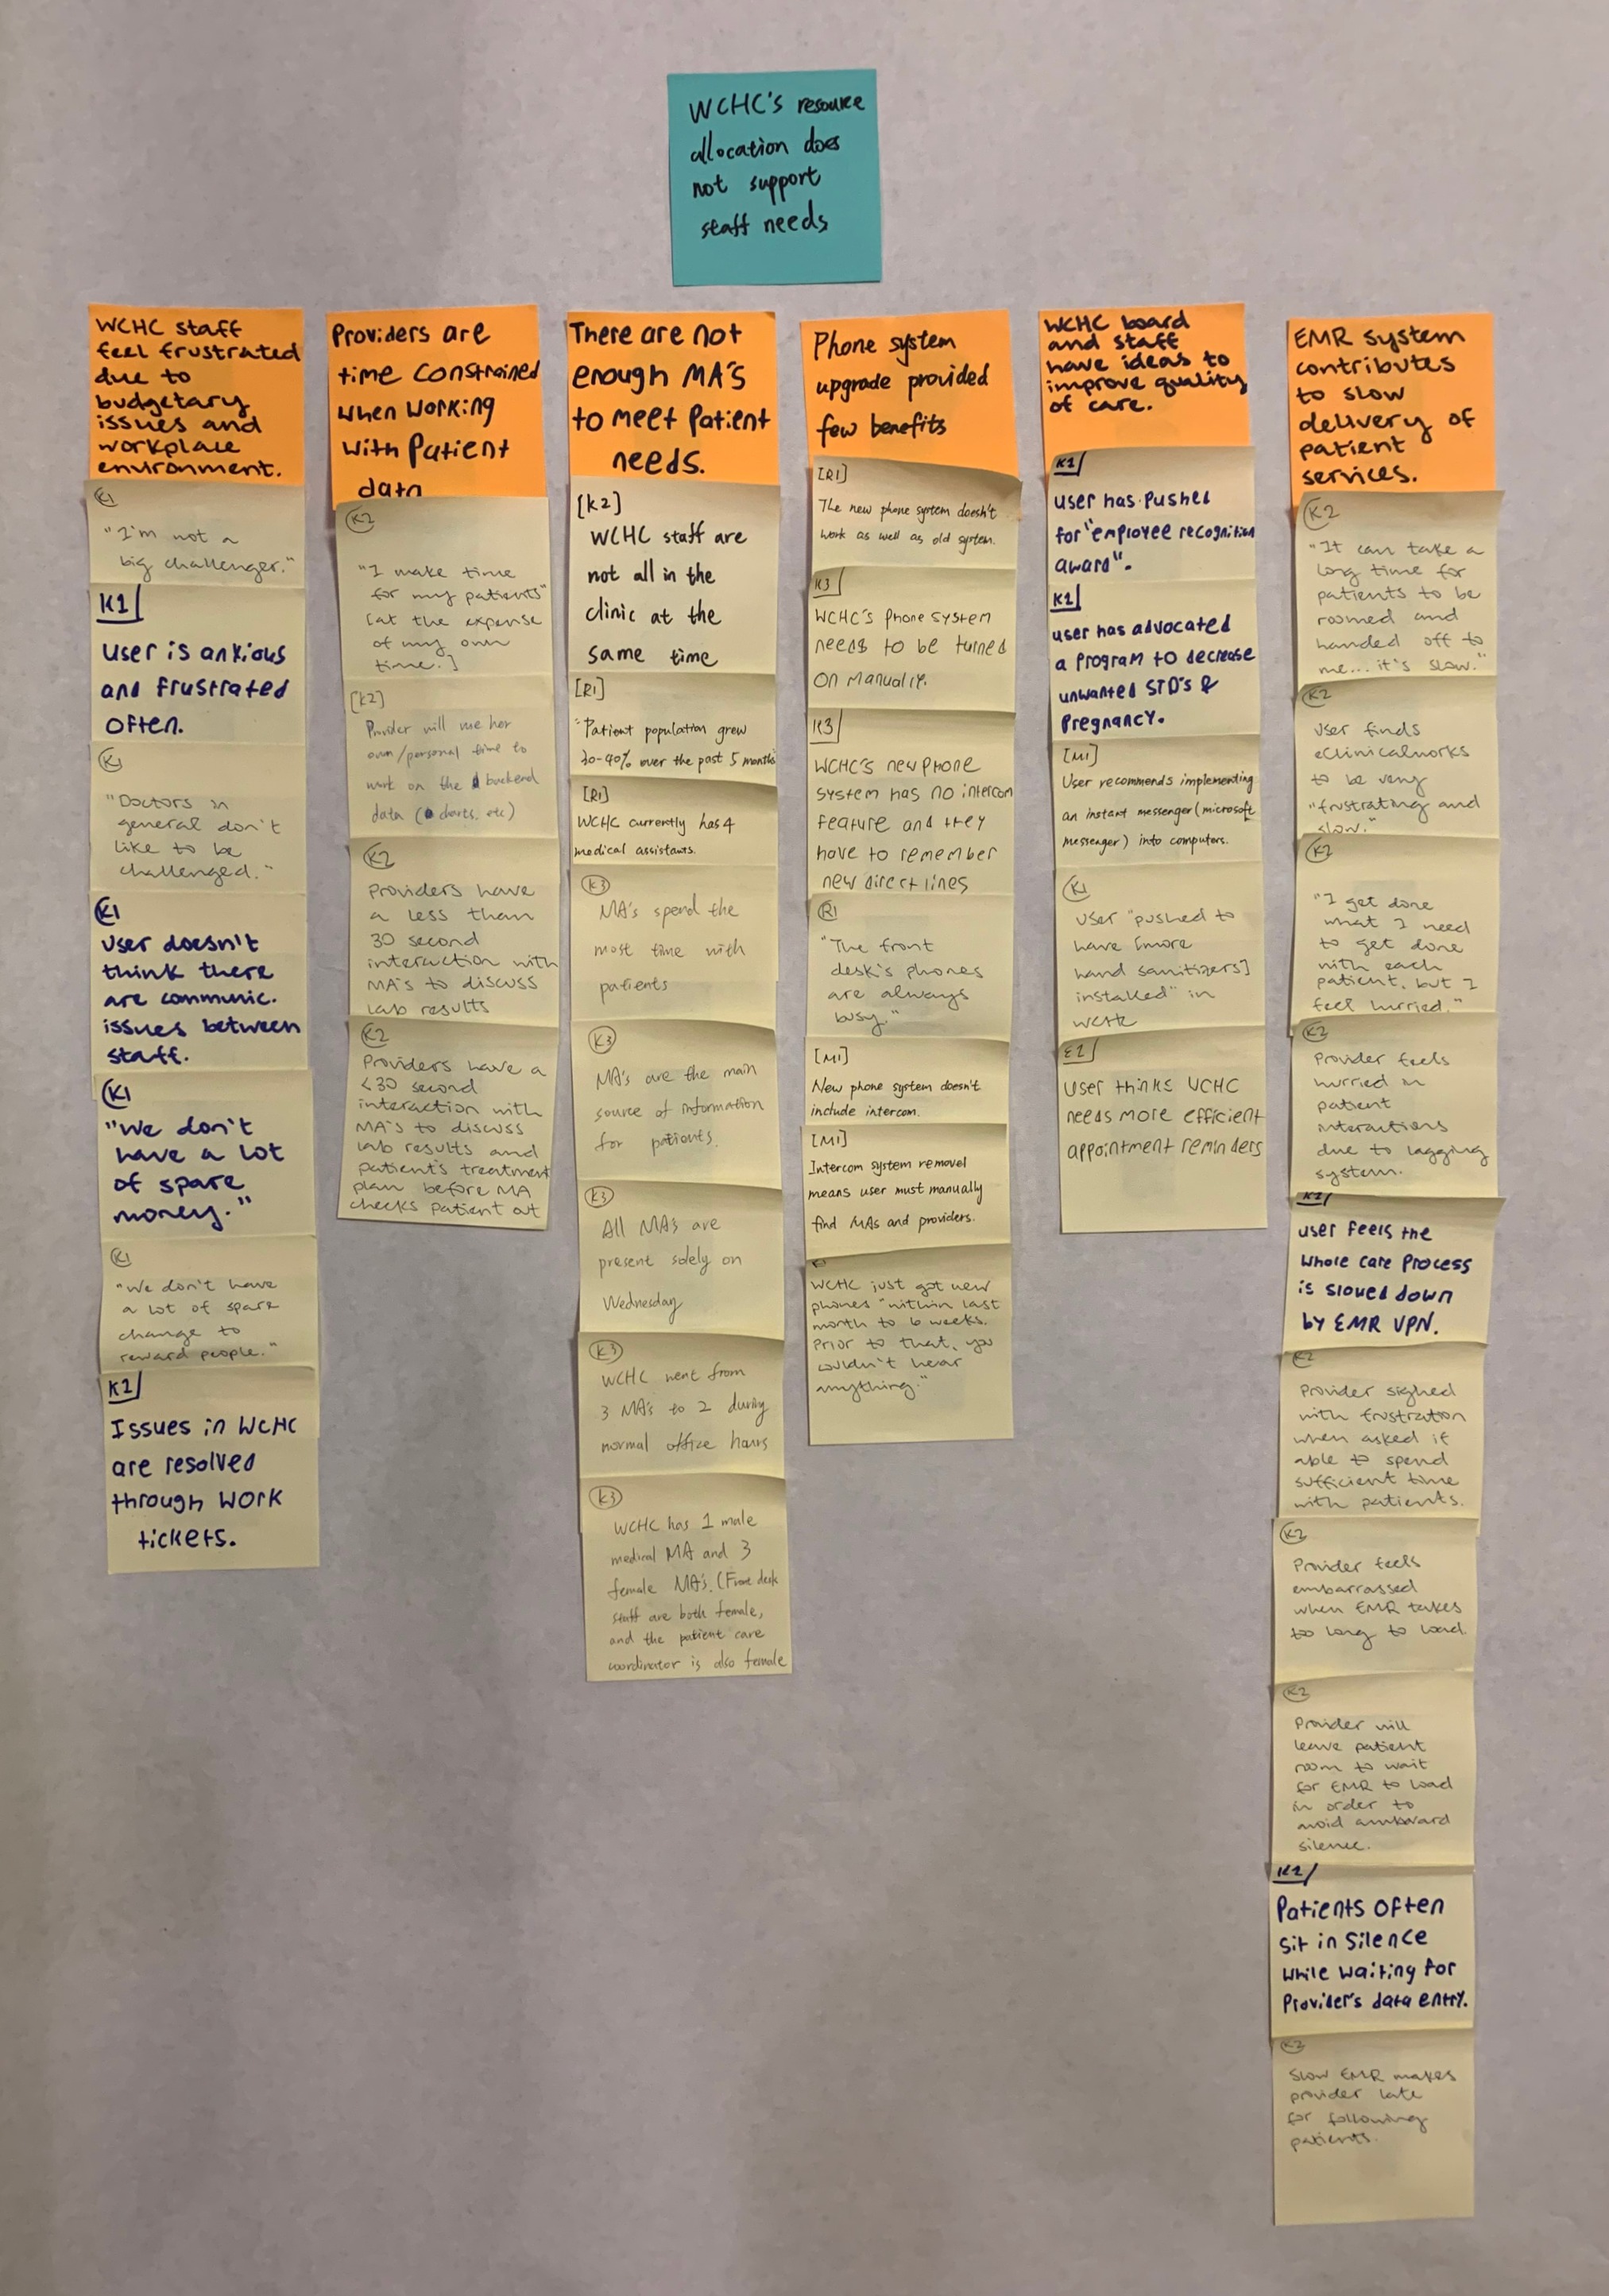 WCHC's resource
allocation does
not support
staff needs
WCHC staff
feel frustrated
due to
budgetary
issues and
workplace
environment.
K1
"I'm not a
big challenger."
K1
user is anxious
and frustrated
often.
K1
"Doctors in
general don't
like to be
challenged."
K1
user doesn't
think there
are communic.
issues between
staff.
K1
"We don't
have a lot
of spare
money."
K1
"We don't have
a lot of spare
change to
reward people."
K2
Issues in WCHC
are resolved
through work
tickets.
Providers are
time constrained
when working
with Patient
data
K2
"I make time
for my patients"
[at the expense
of my own
time.]
[K2]
Provider will use her
own/personal time to
work on the backend
data (charts, etc)
K2
Providers have
a less than
30 second
interaction with
MA's to discuss
lab results
K2
Providers have a
<30 second
interaction with
MA's to discuss
lab results and
patient's treatment
plan before MA
checks patient out
There are not
enough MA's
to meet Patient
needs.
[K2]
WCHC staff are
not all in the
clinic at the
same time
[R1]
"Patient population grew
over the past 5 months
[R1]
WCHC currently has 4
medical assistants.
K3
MA's spend the
most time with
patients
K3
MA's are the main
source of information
for patients.
K3
All MA's are
present solely on
Wednesday
K3
WCHC went from
3 MA's to 2 during
normal office hours
K3
WCHC has 1 male
medical MA and 3
female MA's. (Front desk
staff are both female,
and the patient care
coordinator is also female
Phone system
upgrade provided
few benefits
[R1]
The new phone system doesn't
work as well as old system.
K3
WCHC's Phone system
needs to be turned
on manually.
K3
WCHC's new phone
system has no intercom
feature and they
have to remember
new direct lines
R1
"The front
desk's phones
are always
busy."
[M1]
New phone system doesn't
include intercom.
[M1]
Intercom system removel
means user must manually
find MAs and providers.
WCHC just got new
phones "within last
month to 6 weeks.
Prior to that, you
couldn't hear
anything."
WCHC board
and staff
have ideas to
improve quality
of care.
K1
user has pushed
for "employee recognition
award".
K1
user has advocated
a program to decrease
unwanted STD's &
Pregnancy.
[M1]
User recommends implementing
an instant messenger (microsoft
messenger) into computers.
K1
User "pushed to
have [more
hand sanitizers]
installed" in
E2
User thinks WCHC
needs more efficient
appointment reminders
EMR system
contributes
to slow
delivery of
patient
services.
K2
"It can take a
long time for
patients to be
roomed and
handed off to
me... it's slow."
K2
User finds
eClinicalWorks
to be very
"frustrating and
slow."
K2
"I get done
what I need
to get done
with each
patient, but I
feel hurried."
K2
Provider feels
hurried in
patient
interactions
due to lagging
system.
K1
user feels the
whole care process
is slowed down
by EMR VPN.
K2
Provider sighed
with frustration
when asked if
able to spend
sufficient time
with patients.
K2
Provider feels
embarrassed
when EMR takes
too long to load.
K2
Provider will
leave patient
room to wait
for EMR to load
in order to
avoid awkward
silence.
K2
Patients often
sit in silence
while waiting for
Provider's data entry.
K2
Slow EMR makes
provider late
for following
patients.